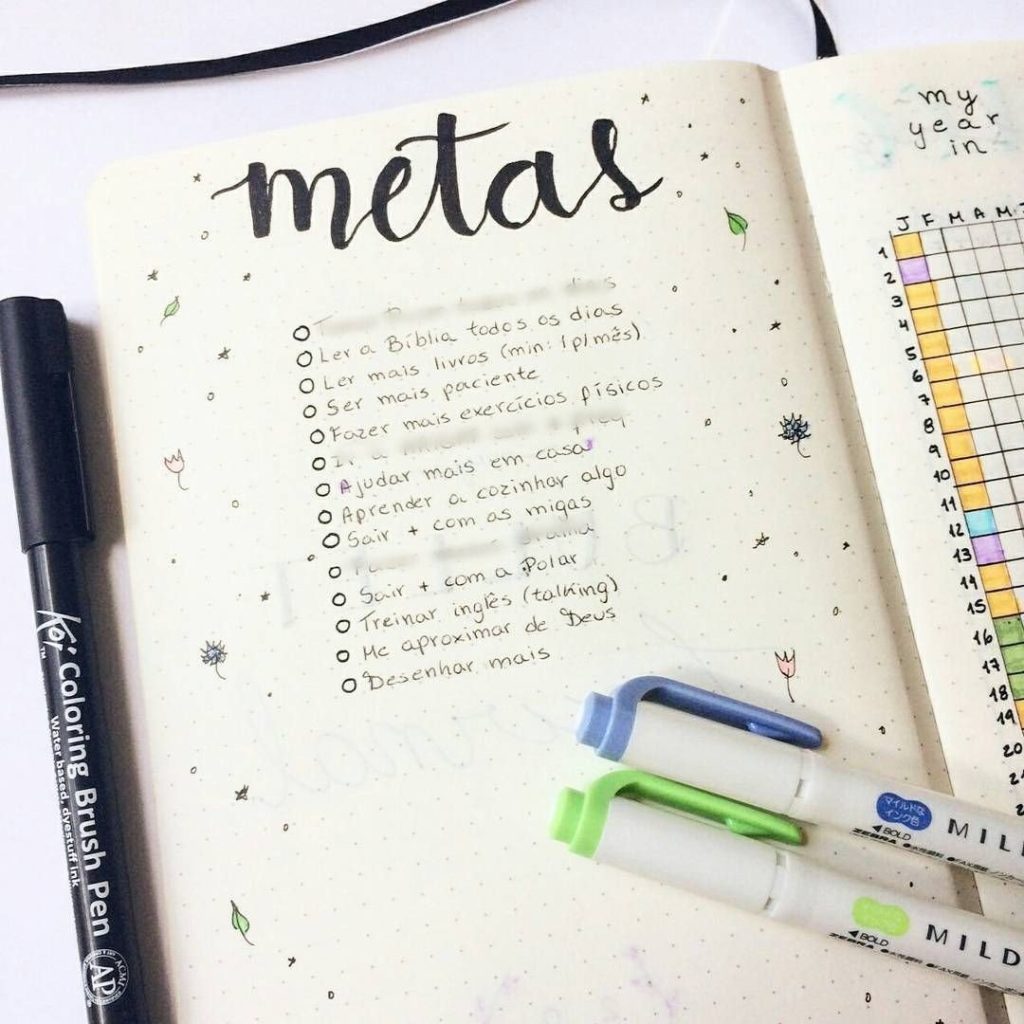 metas
Ler a Bíblia todos os dias
Ler mais livros (min: 1p/mês)
Ser mais paciente
Fazer mais exercícios físicos
Ajudar mais em casa
Aprender a cozinhar algo
Sair + com as migas
Sair + com a Polar
Treinar inglês (talking)
Me aproximar de Deus
Desenhar mais
my
year
in
J F M A M J
1
2
3
4
5
6
7
8
9
10
11
12
13
14
15
16
17
18
19
20
Koi Coloring Brush Pen
TM
Water based, dyestuff ink
AP
ACMI
マイルドな
インク色
◀BOLD
ZEBRA
MILD
◀BOLD
ZEBRA
MILD